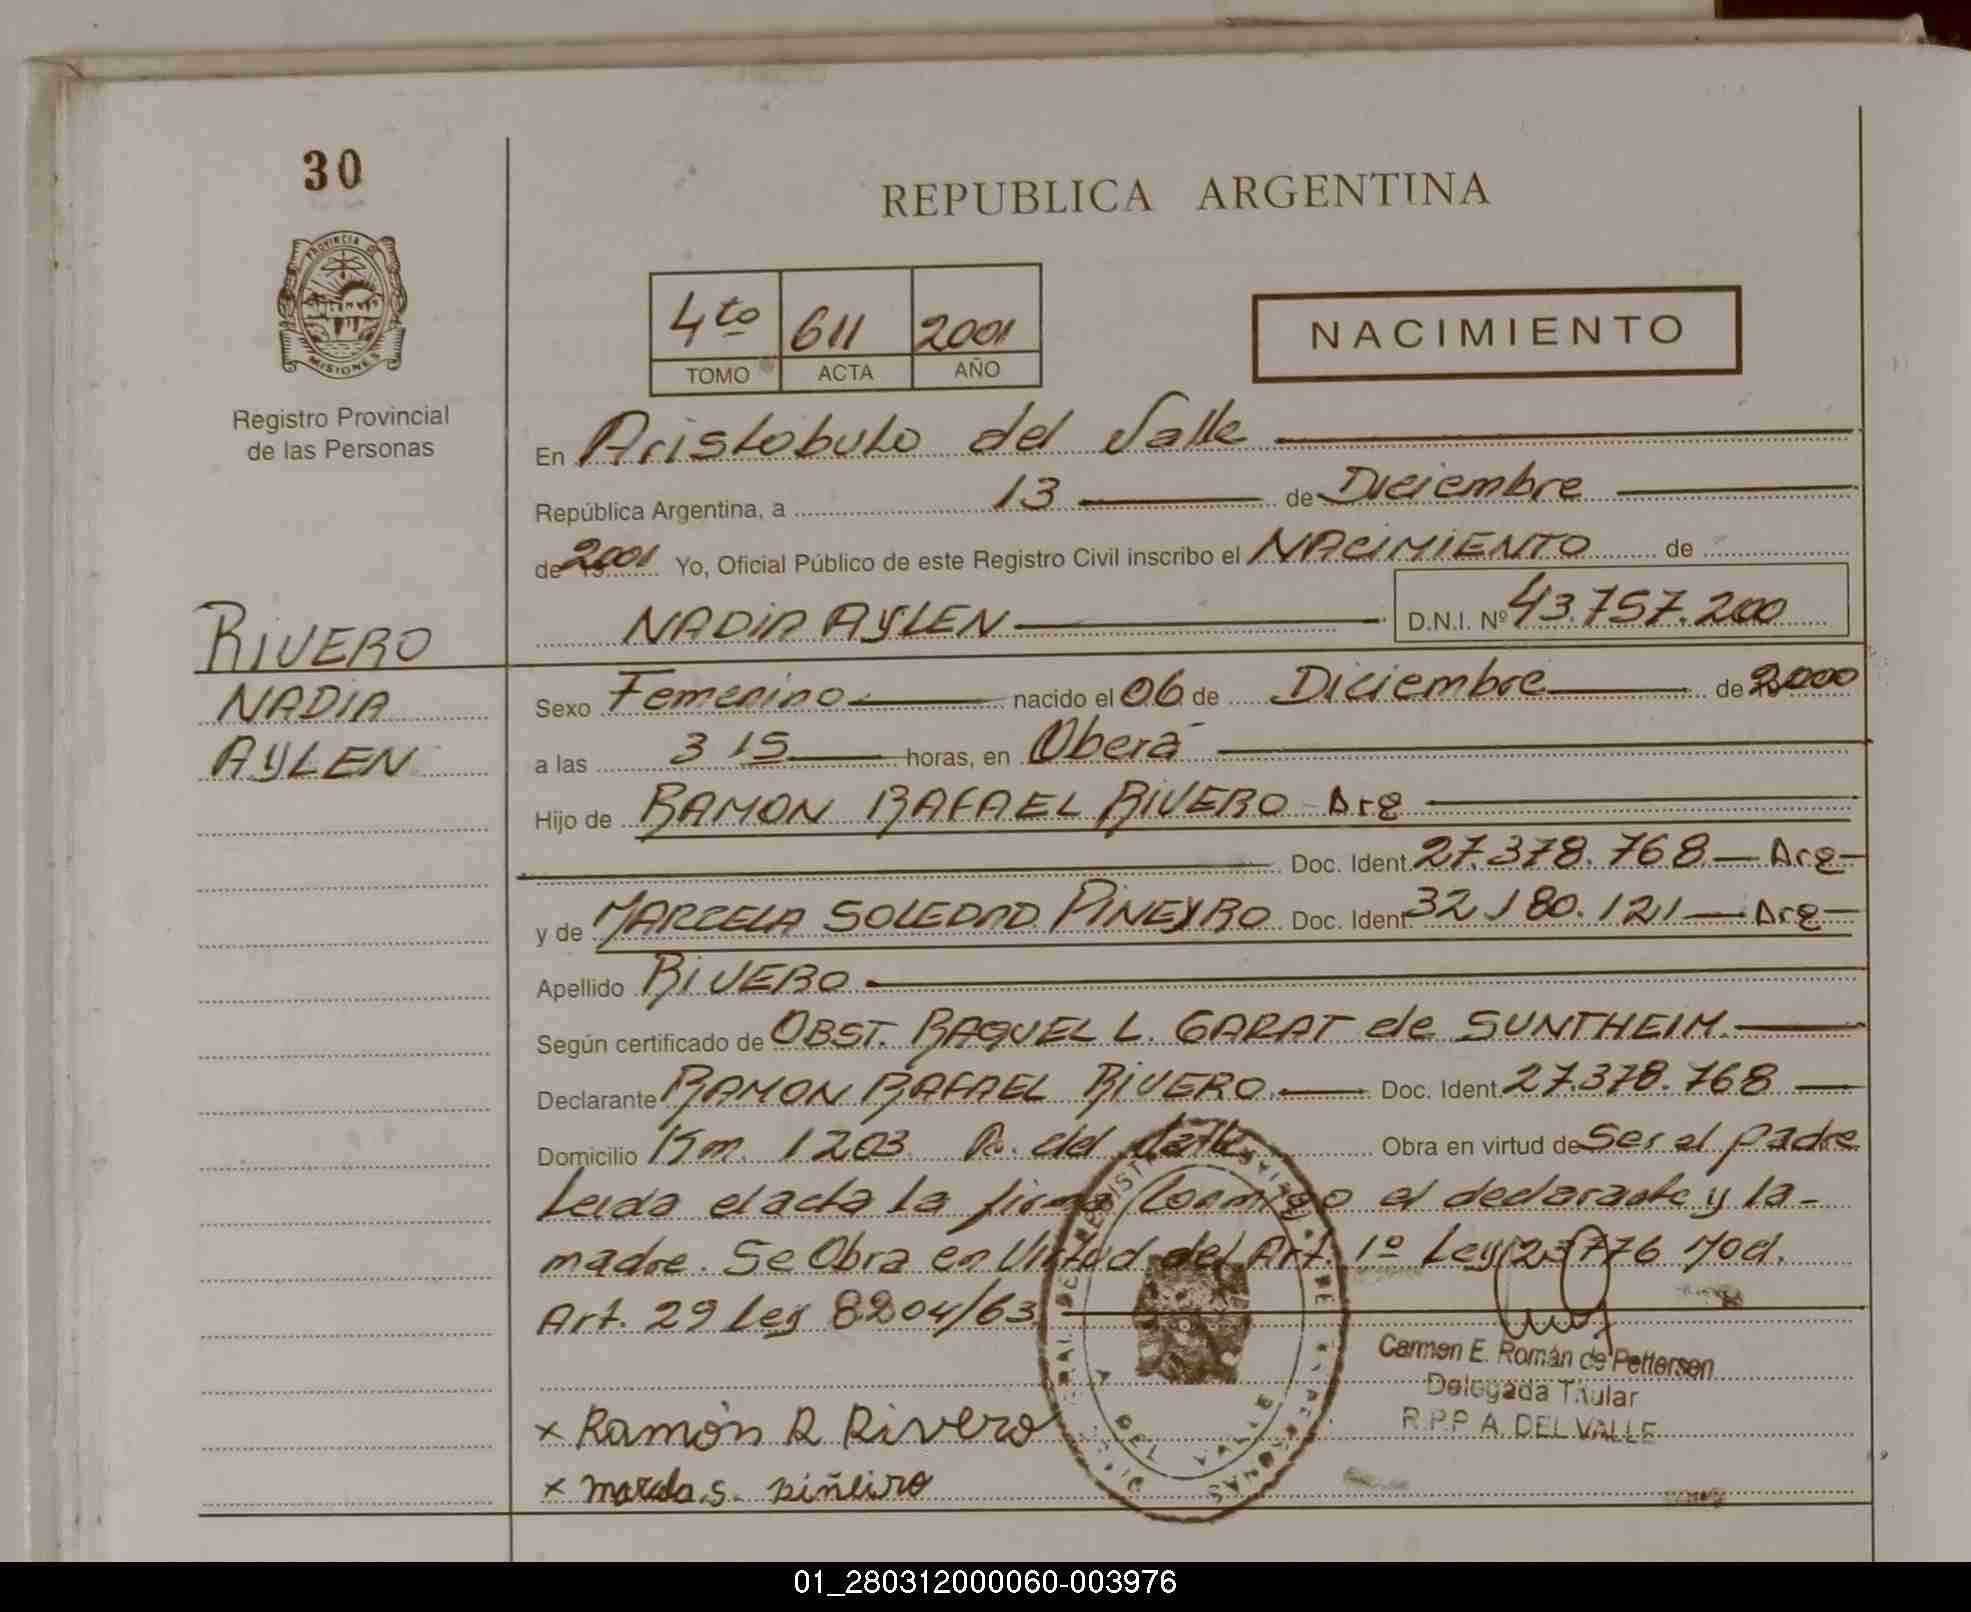 30
REPUBLICA ARGENTINA
PROVINCIA
MISIONES
Registro Provincial
de las Personas
4to 611 2001
TOMO ACTA AÑO
NACIMIENTO
En Aristobulo del Valle
República Argentina, a 13 de Diciembre
de 2001 Yo, Oficial Público de este Registro Civil inscribo el NACIMIENTO de
NADIA AYLEN D.N.I. Nº 43.757.200
RIVERO
NADIA
AYLEN
Sexo Femenino nacido el 06 de Diciembre de 2000
a las 3 15 horas, en Oberá
Hijo de RAMON RAFAEL RIVERO - Arg
Doc. Ident. 27.378.768 — Arg —
y de MARCELA SOLEDAD PINEYRO Doc. Ident. 32.180.121 — Arg —
Apellido RIVERO
Según certificado de OBST. RAQUEL L. GARAT de SUNTHEIM.
Declarante RAMON RAFAEL RIVERO. Doc. Ident. 27.378.768
Domicilio Km. 1203 A. del Valle Obra en virtud de Ser el padre
Leida el acta la firma Conmigo el declarante y la-
madre. Se Obra en Virtud del Art. 1º Ley 23776 Mod.
Art. 29 Ley 8204/63
Carmen E. Román de Pettersen
Delegada Titular
R.P.P A. DEL VALLE
x Ramón R Rivero
x marcela.s. piñeiro
A DEL VALLE
01_280312000060-003976